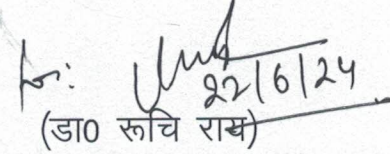 22/6/24
(डा0 रूचि राय)